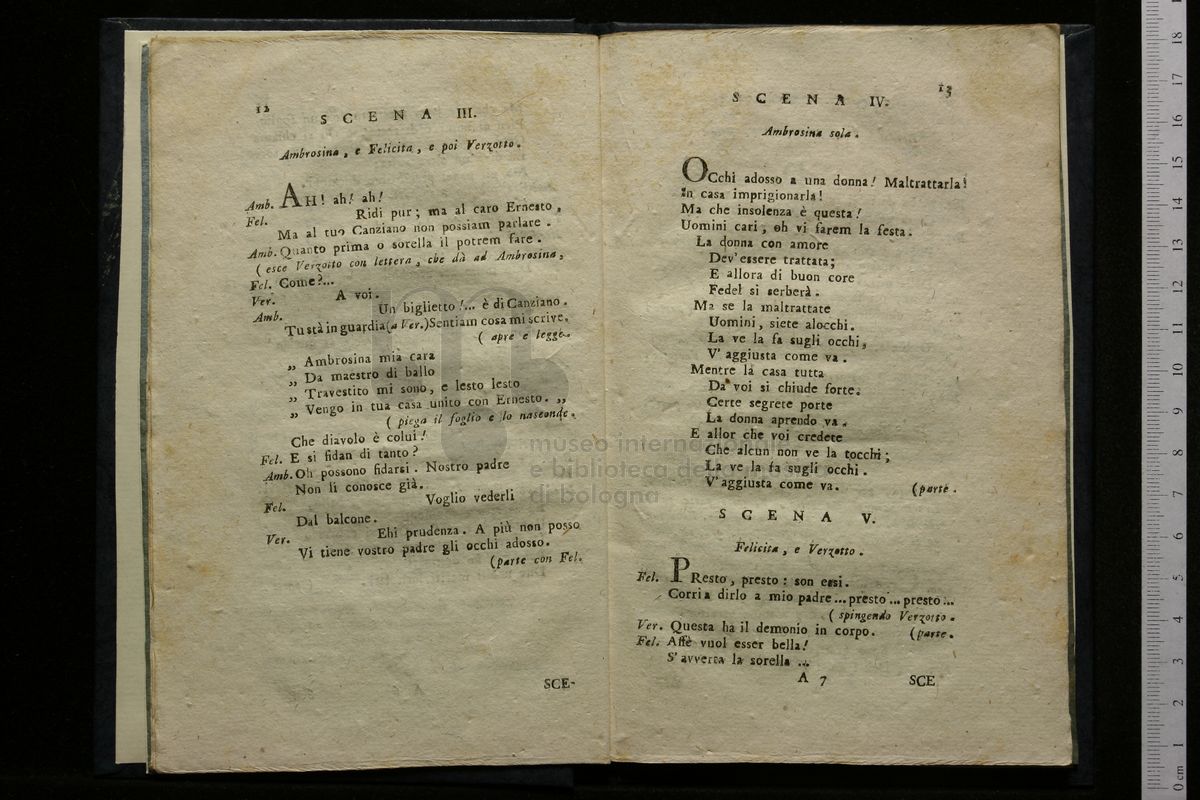 12
SCENA III.
Ambrosina, e Felicita, e poi Verzotto.
Amb. AH! ah! ah!
Fel. Ridi pur; ma al caro Ernesto,
Ma al tuo Canziano non possiam parlare.
Amb. Quanto prima o sorella il potrem fare.
( esce Verzotto con lettera, che dà ad Ambrosina,
Fel. Come?...
Ver. A voi.
Amb. Un biglietto!... è di Canziano.
Tu stà in guardia (a Ver.) Sentiam cosa mi scrive.
( apre e legge.
„ Ambrosina mia cara
„ Da maestro di ballo
„ Travestito mi sono, e lesto lesto
„ Vengo in tua casa unito con Ernesto. „
( piega il foglio e lo nasconde.
Che diavolo è colui!
Fel. E si fidan di tanto?
Amb. Oh possono fidarsi. Nostro padre
Non li conosce già.
Fel. Voglio vederli
Dal balcone.
Ver. Ehi prudenza. A più non posso
Vi tiene vostro padre gli occhi adosso.
(parte con Fel.
SCE-
13
SCENA IV.
Ambrosina sola.
OCchi adosso a una donna! Maltrattarla!
In casa imprigionarla!
Ma che insolenza è questa!
Uomini cari, oh vi farem la festa.
La donna con amore
Dev'essere trattata;
E allora di buon core
Fedel si serberà.
Ma se la maltrattate
Uomini, siete alocchi.
La ve la fa sugli occhi,
V'aggiusta come va.
Mentre la casa tutta
Da voi si chiude forte.
Certe segrete porte
La donna aprendo va.
E allor che voi credete
Che alcun non ve la tocchi;
La ve la fa sugli occhi.
V'aggiusta come va. (parte.
SCENA V.
Felicita, e Verzotto.
Fel. PResto, presto: son essi.
Corri a dirlo a mio padre... presto... presto...
( spingendo Verzotto.
Ver. Questa ha il demonio in corpo. (parte.
Fel. Affè vuol esser bella!
S'avverta la sorella ...
A 7 SCE
museo internazionale
e biblioteca della
di bologna
0 cm 1 2 3 4 5 6 7 8 9 10 11 12 13 14 15 16 17 18